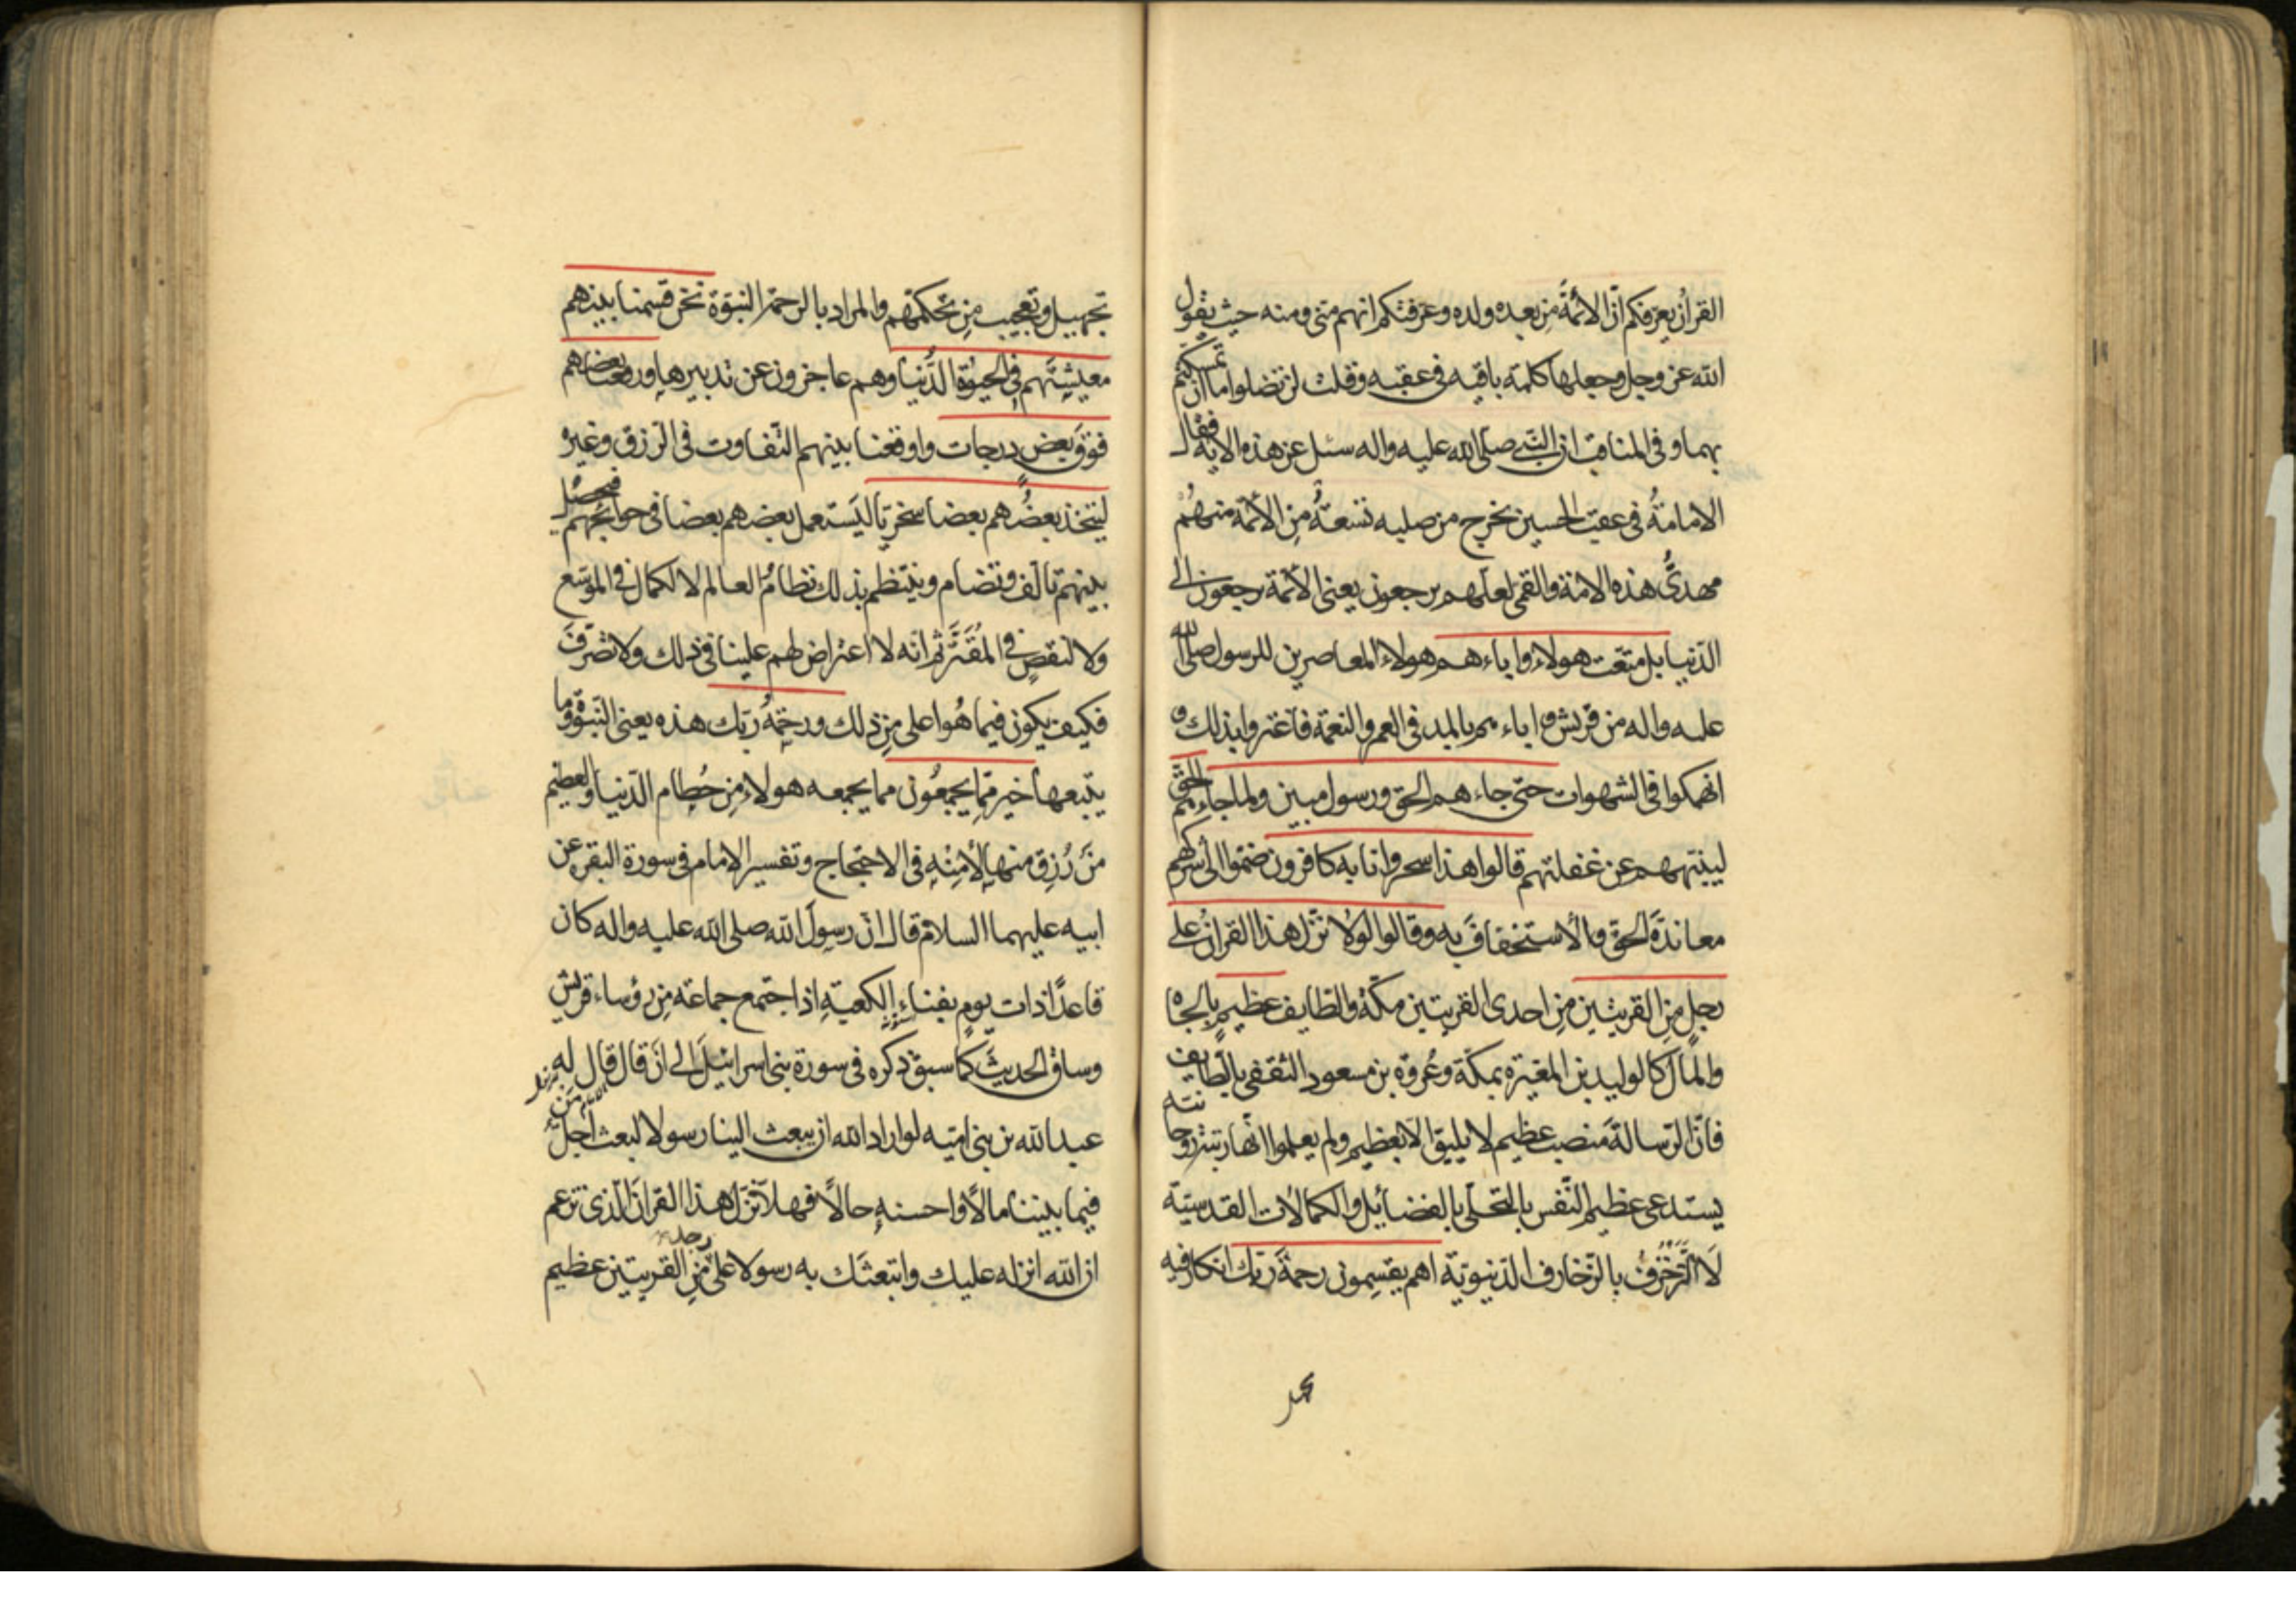 القرانُ يعرّفكم انّ الائمّةَ مِن بعده ولده وعرّفتكم انهم منّي ومنه حيث يقول
الله عز وجل وجعلها كلمة باقيه في عقبه وقلت لن تضلوا ما ان تمسكتم
بهما وفي المناقب ان النبي صلى الله عليه واله سئل عن هذه الاية فقال
الامامةُ في عقب الحسين يخرج من صلبه تسعةٌ مِن الائمّة منهُم
مهديُّ هذه الامة والقمي لعلّهم يرجعون يعني الائمّة يرجعون الى
الدّنيا بل متّعت هولاء واباءهم هولاء المعاصرين للرسول صلى الله
عليه واله من قريش واباءهم بالمد في العمر والنعمة فاغتروا بذلك و
انهمكوا في الشهوات حتى جاءهم الحق ورسول مبين ولما جاءهم الحق
لينبّههم عن غفلتهم قالوا هذا سحر وانا به كافرون ضمّوا الى شركهم
معاندةَ الحق والاستخفافَ به وقالوا لولا نزّل هذا القرانُ على
رجلٍ مِن القريتين مِن احدى القريتين مكّة والطايف عظيمٍ بالجاه
والمال كالوليد بن المغيرة بمكّة وعُروة بن مسعود الثقفي بالطّايف
فانّ الرّسالةَ منصب عظيم لا يليق الا بعظيم ولم يعلموا انّها رتبة روحانيّة
يستدعي عظيم النّفس بالتحلّي بالفضائل والكمالات القدسيّة
لَا التّزخرُف بالزّخارف الدّنيويّة اهم يقسِمون رحمةَ ربّك انكار فيه
تجهيل وتعجيب مِن تحكّمهم والمراد بالرحمة النبوّة نحن قسمنا بينهم
معيشتَهم في الحيوة الدُّنيا وهم عاجزون عن تدبيرها ورفعنا بعضهم
فوقَ بعضٍ درجات واوقعنا بينهم التّفاوت في الرّزق وغيره
ليتّخذ بعضُهم بعضا سخريّا ليَستعمل بعضهم بعضا في حوائجهم فيحصل
بينهم تالّف وتضام وينتظم بذلك نظامُ العالم لا لكمال في الموسّع
ولا لنقصٍ في المُقَتَّر ثم انّه لا اعتراض لهم علينا في ذلك ولا تصرّفَ
فكيف يكون فيما هُو اعلى مِن ذلك ورحمةُ ربّك هذه يعني النّبوّة وما
يتبعها خير ممّا يجمعُون مما يجمعه هولاء مِن حُطام الدّنيا والعظيم
مَن رُزق منها لا مِنْهِ في الاحتجاج وتفسير الامام في سورة البقره عن
ابيه عليهما السلام قال انّ رسولَ الله صلى الله عليه واله كان
قاعدًا ذات يومٍ بفناءِ الكعبةِ اذ اجتمع جماعة مِن رؤساء قريش
وساق الحديثَ كما سبق ذكره في سورة بني اسرائيلَ الى انَ قال قال له
عبد الله بن بني اميّه لو اراد الله ان يبعث الينا رسولا لبعث اجلّ مَن
فيما بيننا مالًا واحسنه حالًا فهلّا نزّل هذا القرانَ الّذي تزعم
ان الله انزله عليك وابتعثَك به رسولا على رجل مِن القريتين عظيم